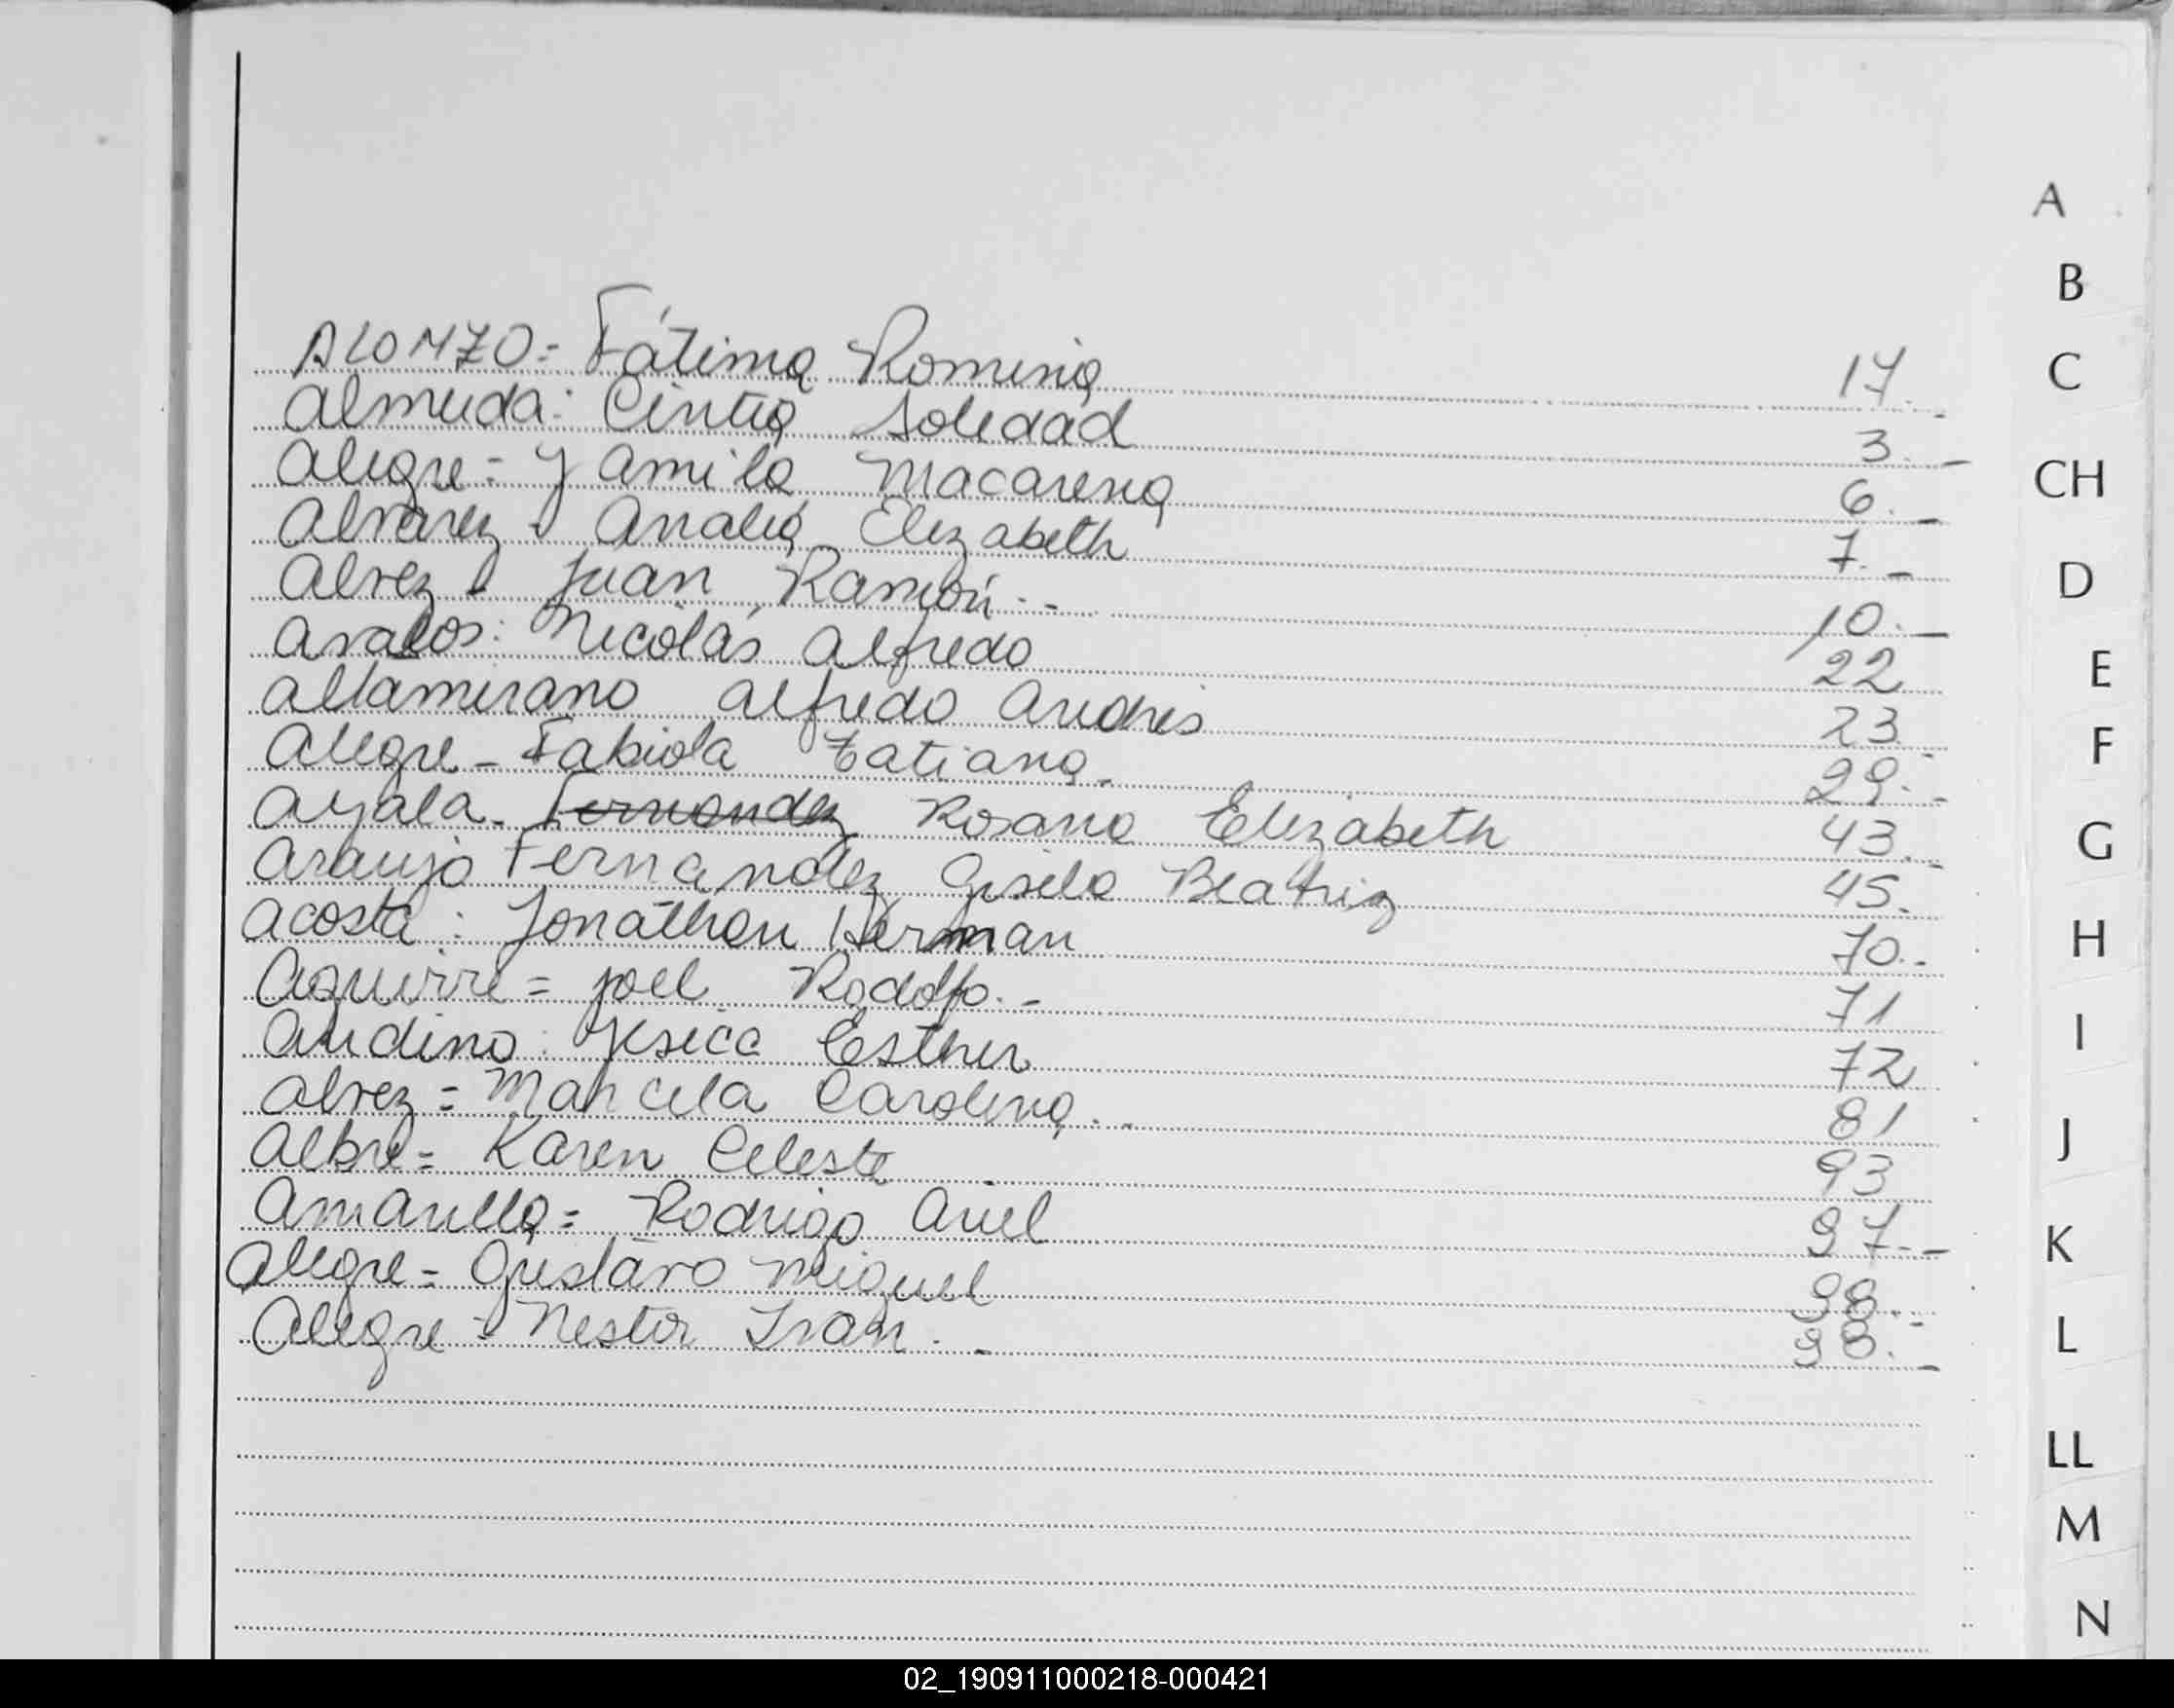 ALONZO = Fátima Romina 17.-
Almeida : Cintia Soledad 3.-
Alegre = Yamila Macarena 6.-
Alvarez - Analia Elizabeth 7.-
Alvez - Juan Ramón.- 10.-
Avalos : Nicolás Alfredo 22
Altamirano Alfredo Andres 23.-
Alegre - Fabiola Tatiana.- 29.-
Ayala - Fernandez Rosana Elizabeth 43.-
Araujo Fernandez Gisela Beatriz 45.
Acosta : Jonathan Herman 70.-
Aguirre = Joel Rodolfo.- 71
Andino : Jesica Esther 72
Alvez = Marcela Carolina.- 81
Albre = Karen Celeste 93
Amarilla = Rodrigo Ariel 97.-
Alegre = Gustavo Miguel 98.-
Alegre = Nestor Ivan.- 98.-
A
B
C
CH
D
E
F
G
H
I
J
K
L
LL
M
N
02_190911000218-000421